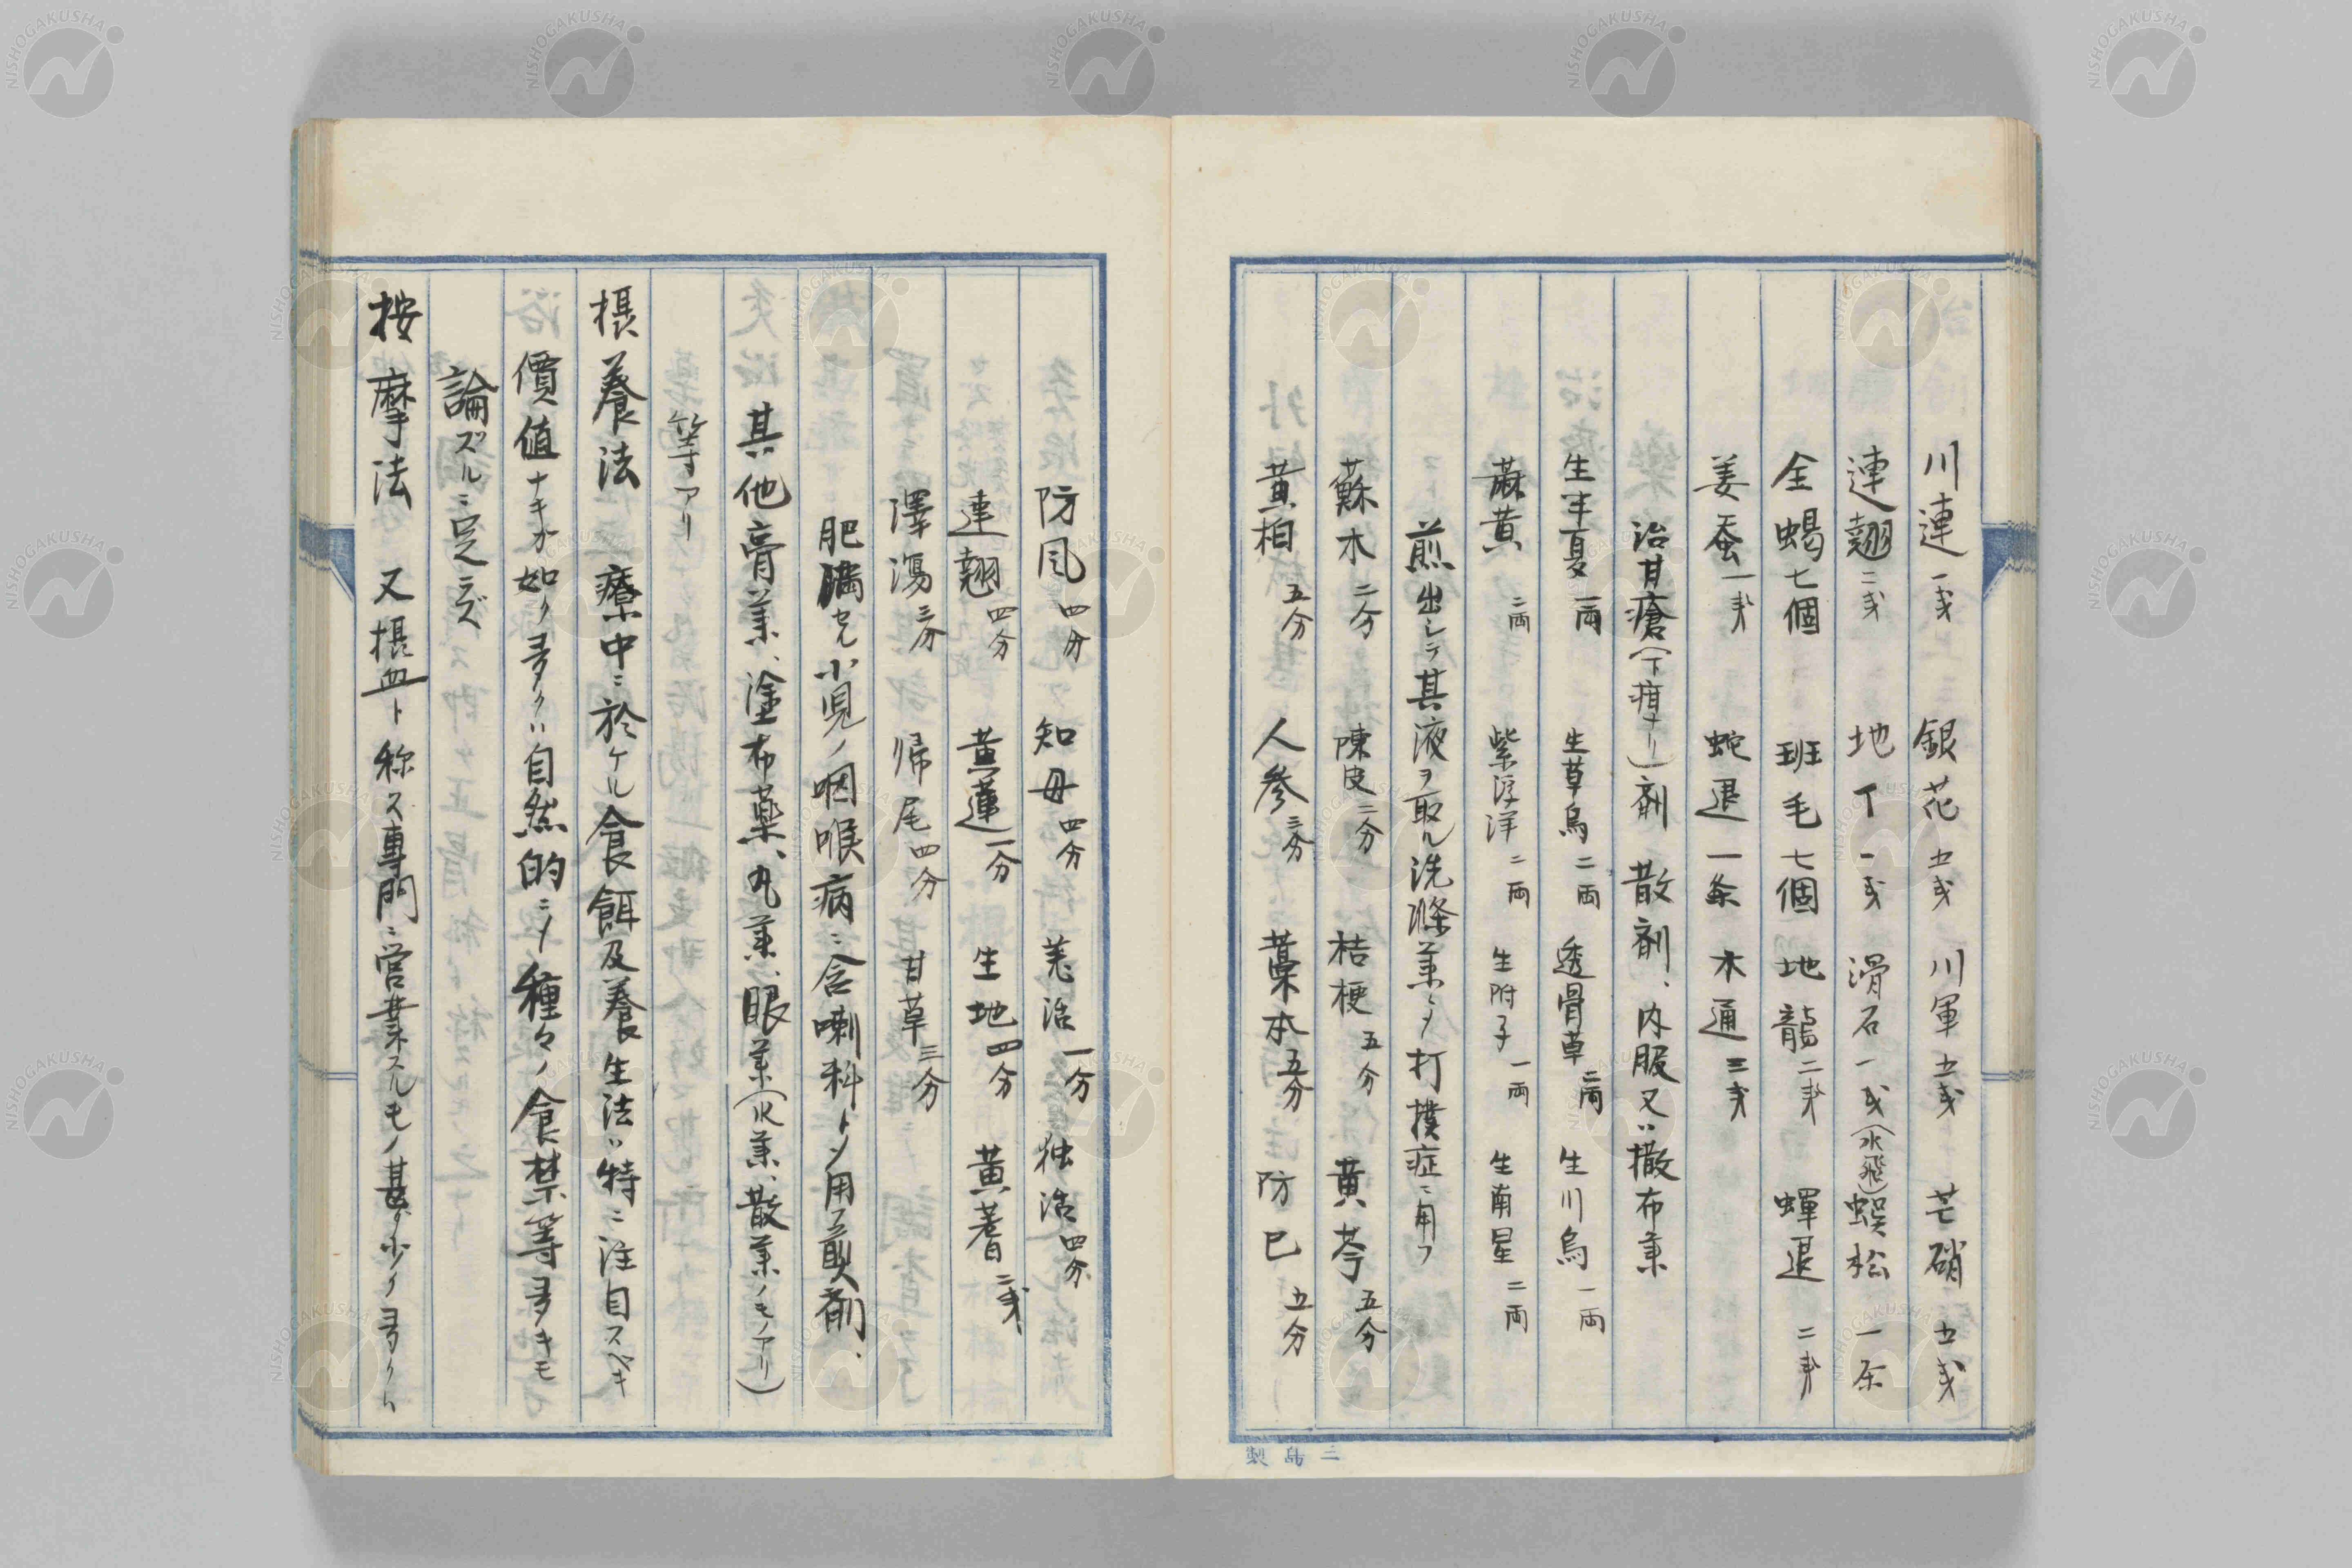 川連 一戔 銀花 五戔 川軍 五戔 芒硝 五戔
連翹 二戔 地丁 一戔 滑石 一戔(水飛) 蜈松 一条
全蝎 七個 班毛 七個 地龍 二戔 蝉退 二戔
姜蚕 一戔 蛇退 一条 木通 三戔
治甘瘡(下疳ナリ)剤 散剤、内服又ハ撒布薬
生半夏 一両 生草烏 二両 透骨草 二両 生川烏 一両
麻黄 二両 紫浮洋 二両 生附子 一両 生南星 二両
煎出シテ其液ヲ取ル洗滌薬ニシテ打撲症ニ用フ
蘇木 二分 陳皮 二分 桔梗 五分 黄芩 五分
黄柏 五分 人参 三分 藁本 五分 防已 五分
三島製
防風 四分 知母 四分 羗活 一分 独活 四分
連翹 四分 黄蓮 一分 生地 四分 黄蓍 二戔
澤瀉 三分 帰尾 四分 甘草 三分
肥満セル小児ノ咽喉病ニ含嗽料トシテ用フ煎剤、
其他膏薬、塗布薬、丸薬、眼薬(水薬、散薬ノモノアリ)
等アリ
摂養法 療中ニ於ケル食餌及養生法ハ特ニ注目スベキ
價値ナキガ如ク多クハ自然的ニシテ種々ノ食禁等多キモ
論ズルニ足ラズ
按摩法 又摂血ト称ス專門ニ営業スルモノ甚ダ少ク多クハ